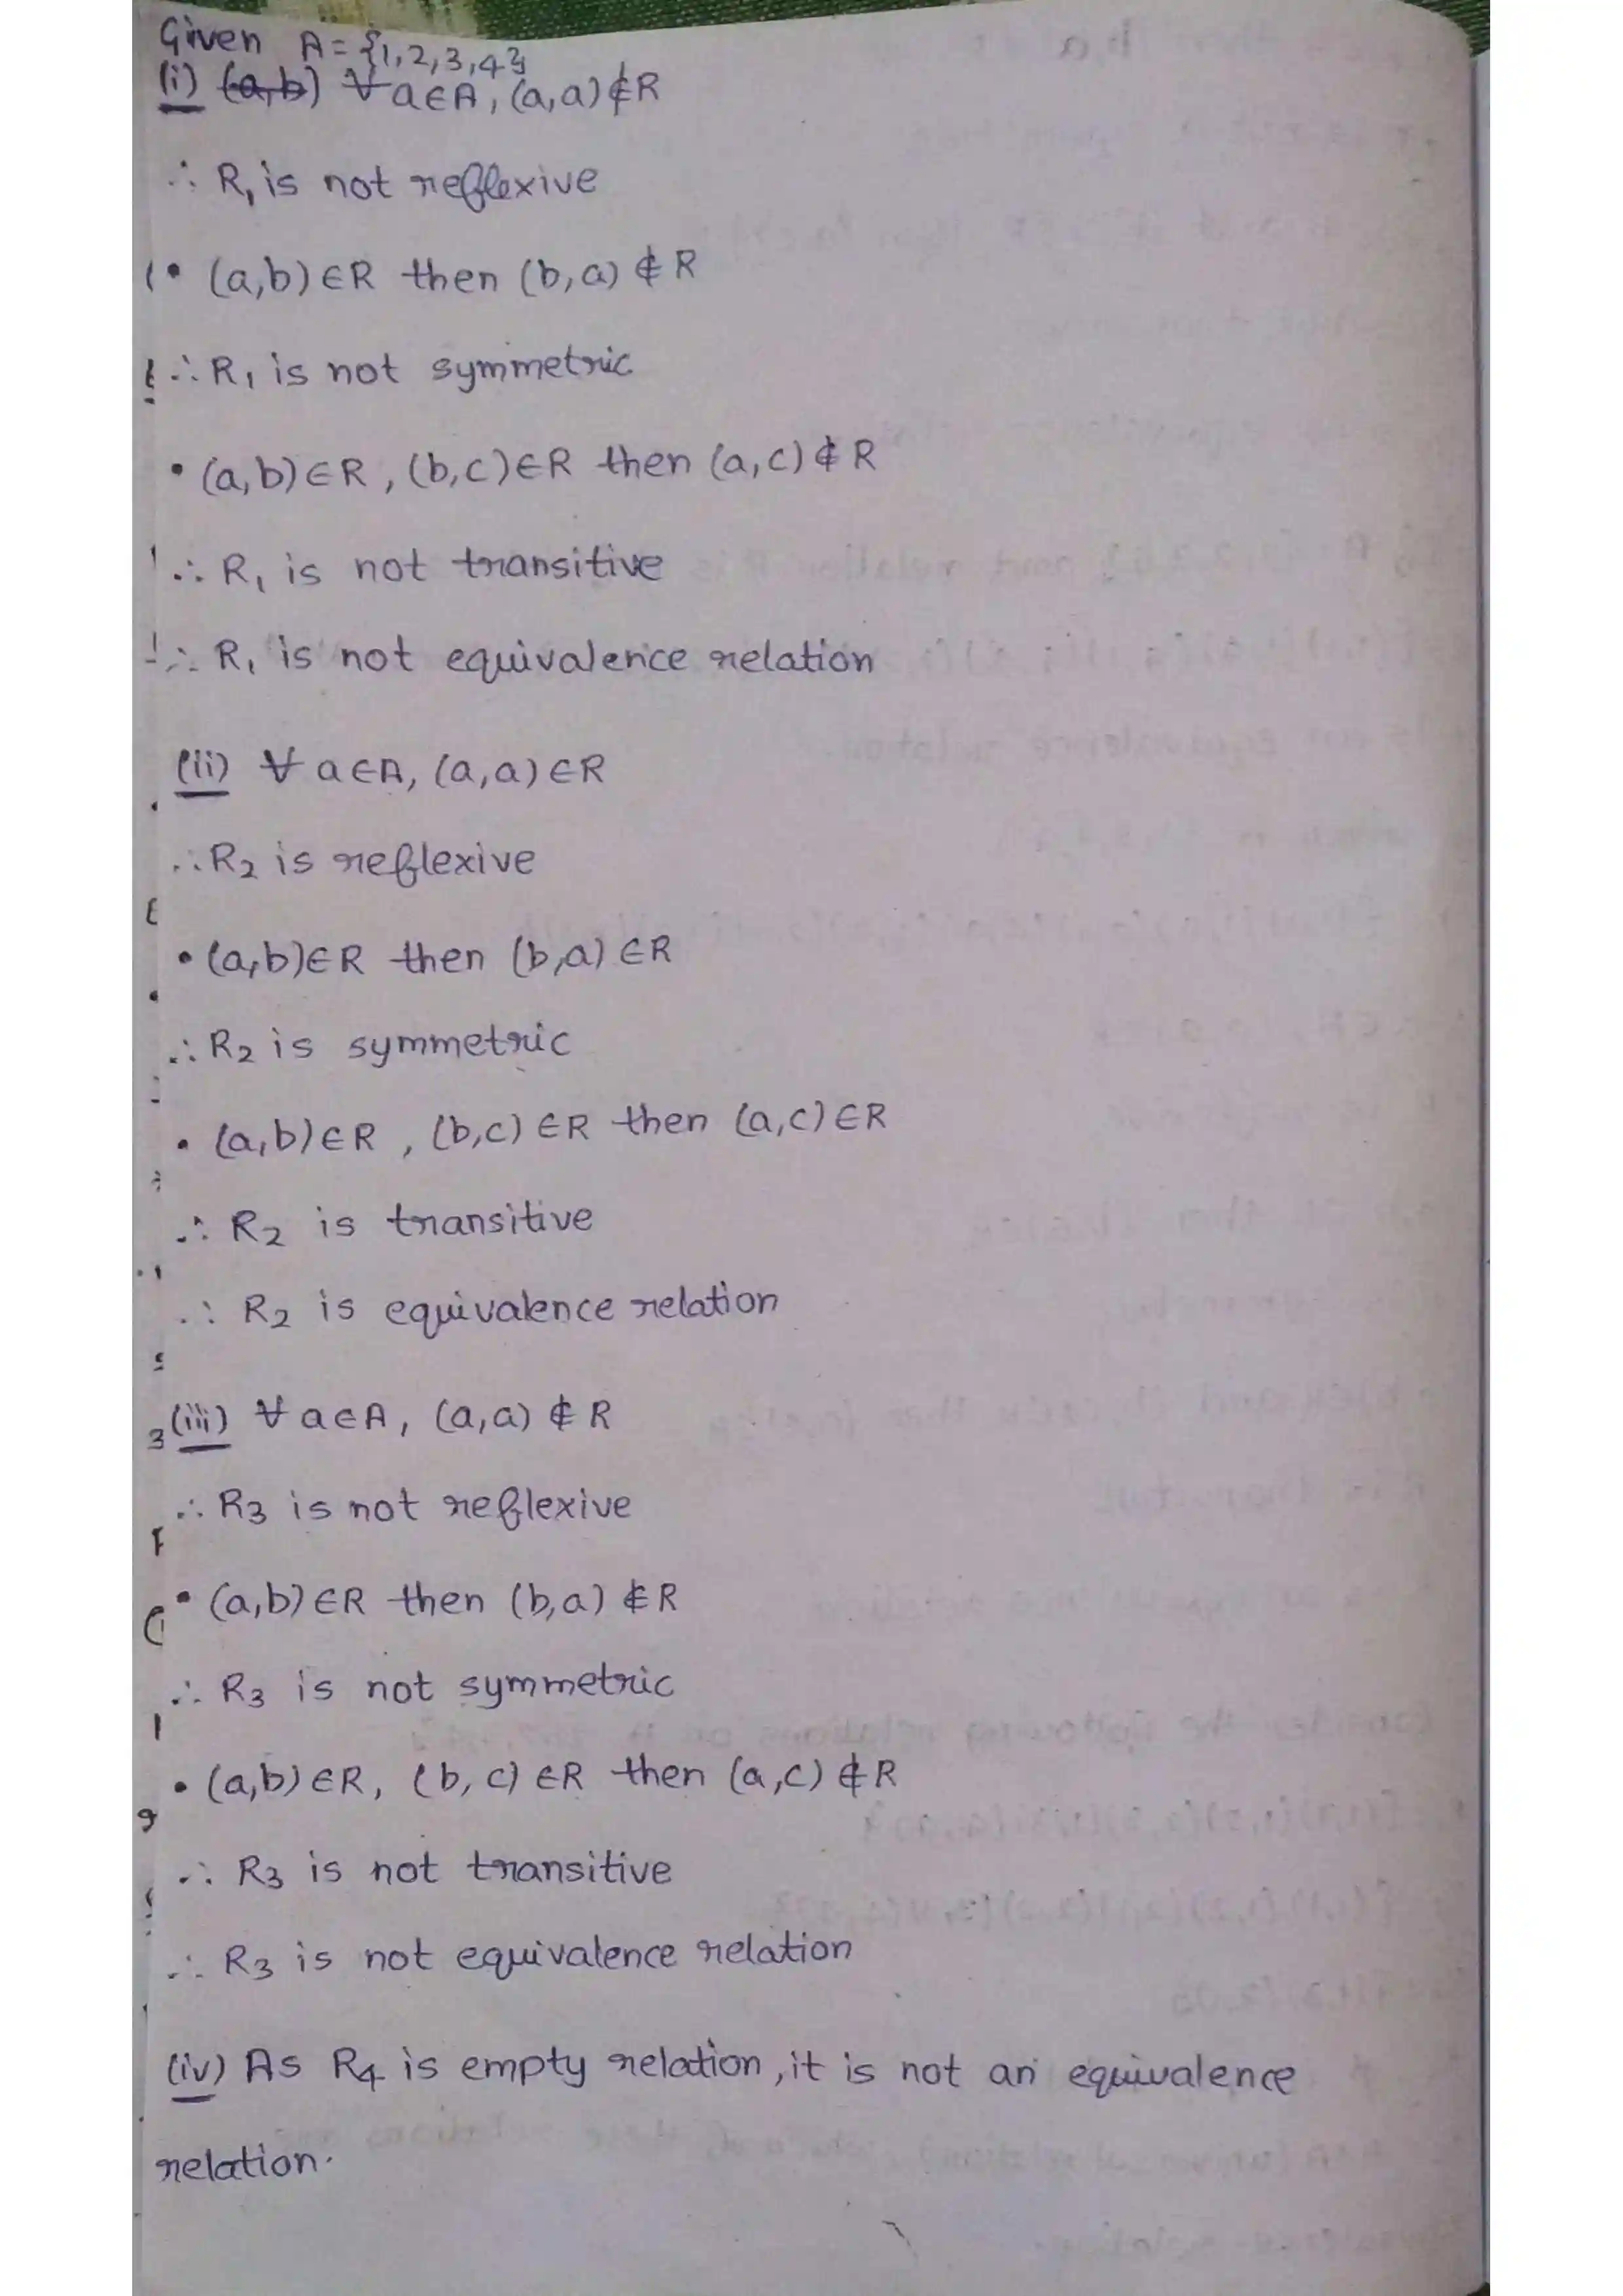 Given A = {1,2,3,4}
(i) (a,b) ∀ a∈A, (a,a)∉R
∴ R₁ is not reflexive
• (a,b)∈R then (b,a)∉R
∴ R₁ is not symmetric
• (a,b)∈R, (b,c)∈R then (a,c)∉R
∴ R₁ is not transitive
∴ R₁ is not equivalence relation
(ii) ∀ a∈A, (a,a)∈R
∴ R₂ is reflexive
• (a,b)∈R then (b,a)∈R
∴ R₂ is symmetric
• (a,b)∈R, (b,c)∈R then (a,c)∈R
∴ R₂ is transitive
∴ R₂ is equivalence relation
(iii) ∀ a∈A, (a,a)∉R
∴ R₃ is not reflexive
• (a,b)∈R then (b,a)∉R
∴ R₃ is not symmetric
• (a,b)∈R, (b,c)∈R then (a,c)∉R
∴ R₃ is not transitive
∴ R₃ is not equivalence relation
(iv) As R₄ is empty relation, it is not an equivalence
relation.